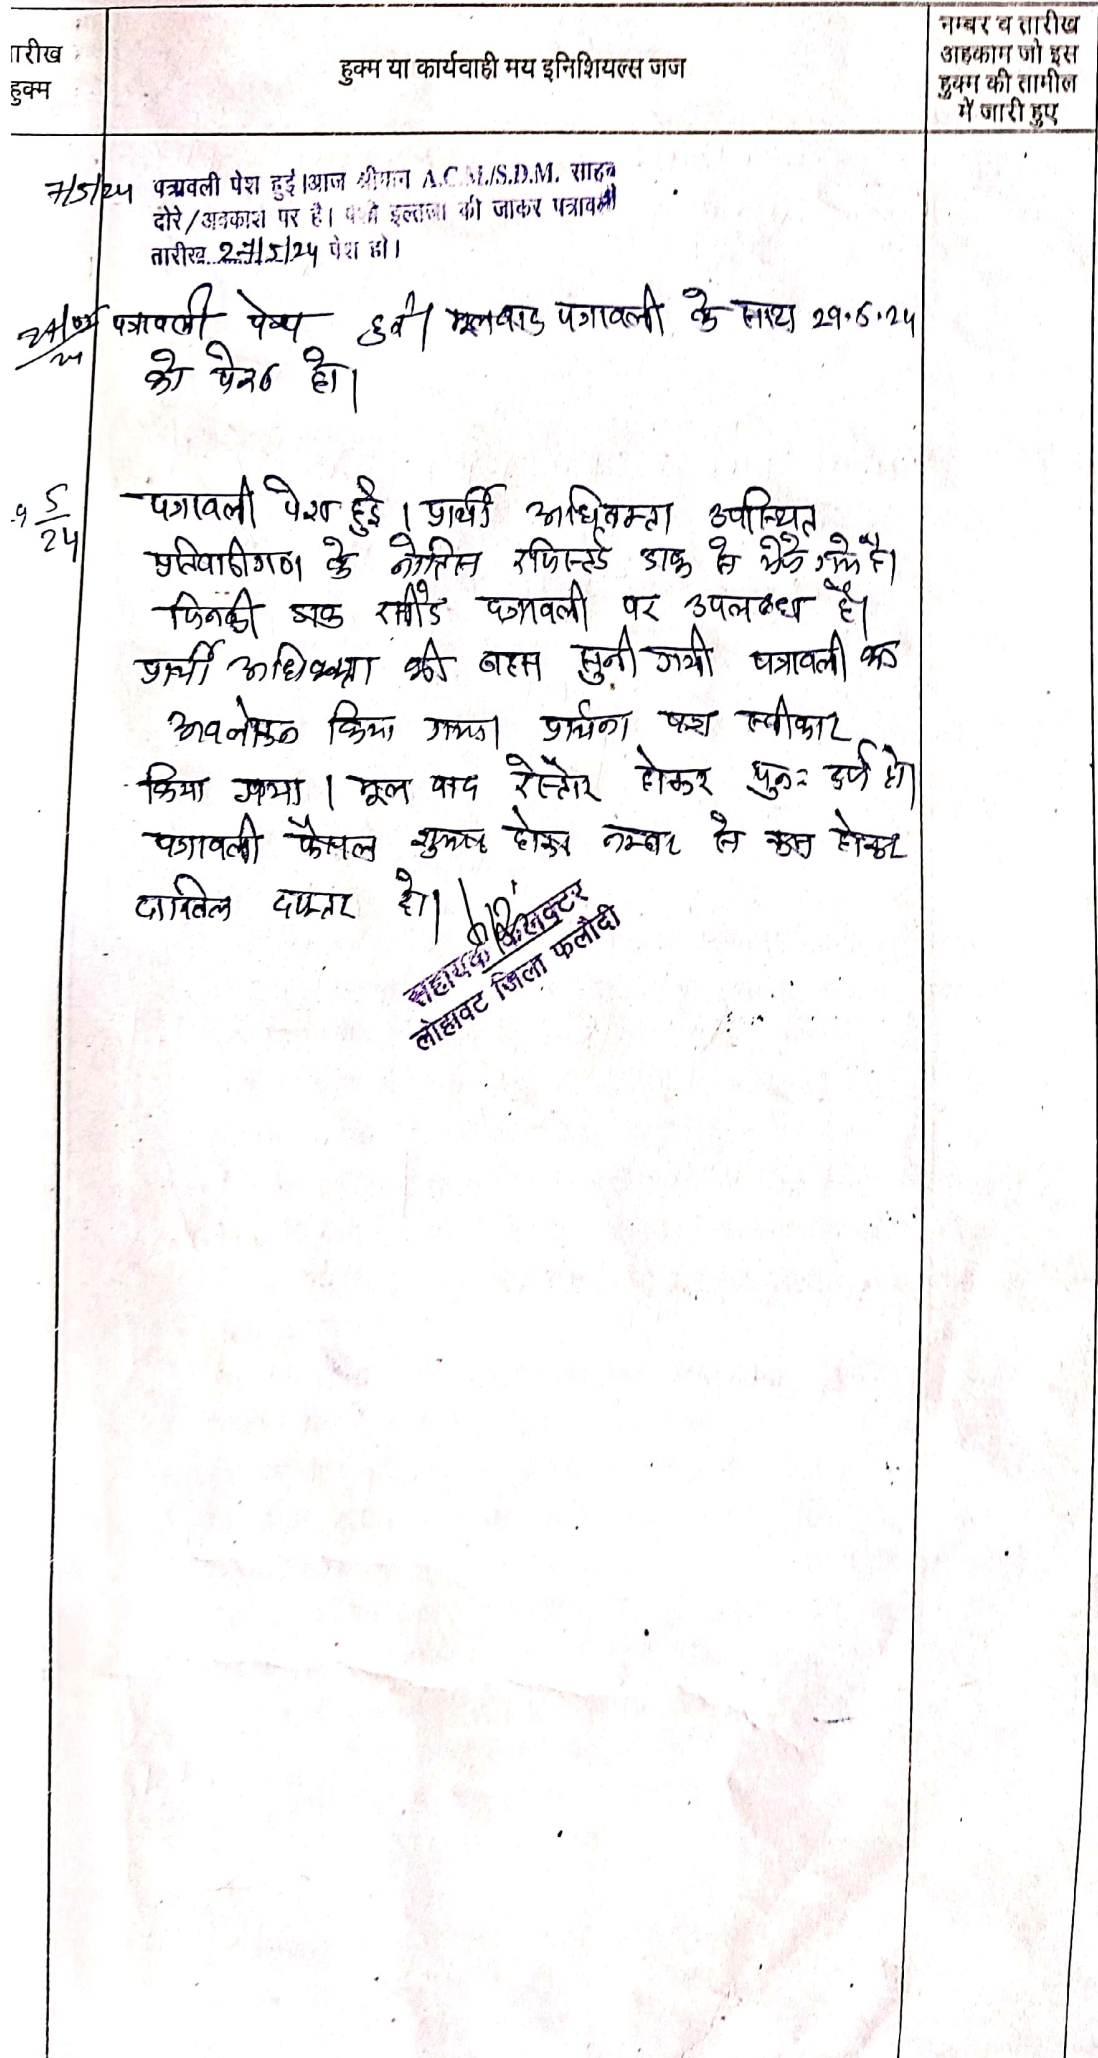 तारीख
हुक्म
हुक्म या कार्यवाही मय इनिशियल्स जज
नम्बर व तारीख
अहकाम जो इस
हुक्म की तामील
में जारी हुए
7/5/24 पत्रावली पेश हुई।आज श्रीमान A.C.M./S.D.M. साहब
दौरे/अवकाश पर है। पेशी इल्तजा की जाकर पत्रावली
तारीख 27/5/24 पेश हो।
पत्रावली पेश हुई। मूलवाद पत्रावली के साथ 29.5.24
को पेश हो।
5/24 पत्रावली पेश हुई। प्रार्थी अधिवक्ता उपस्थित
प्रतिवादीगण के नोटिस रजिस्टर्ड डाक से भेजे गये है।
जिनकी डाक रसीदे पत्रावली पर उपलब्ध है।
प्रार्थी अधिवक्ता की बहस सुनी गयी पत्रावली का
अवलोकन किया गया। प्रार्थना पत्र स्वीकार
किया गया। मूल वाद रेस्टोर होकर पुनः दर्ज हो।
पत्रावली फैसल शुमार होकर नम्बर से कम होकर
दाखिल दफ्तर हो।
सहायक कलक्टर
लोहावट जिला फलोदी